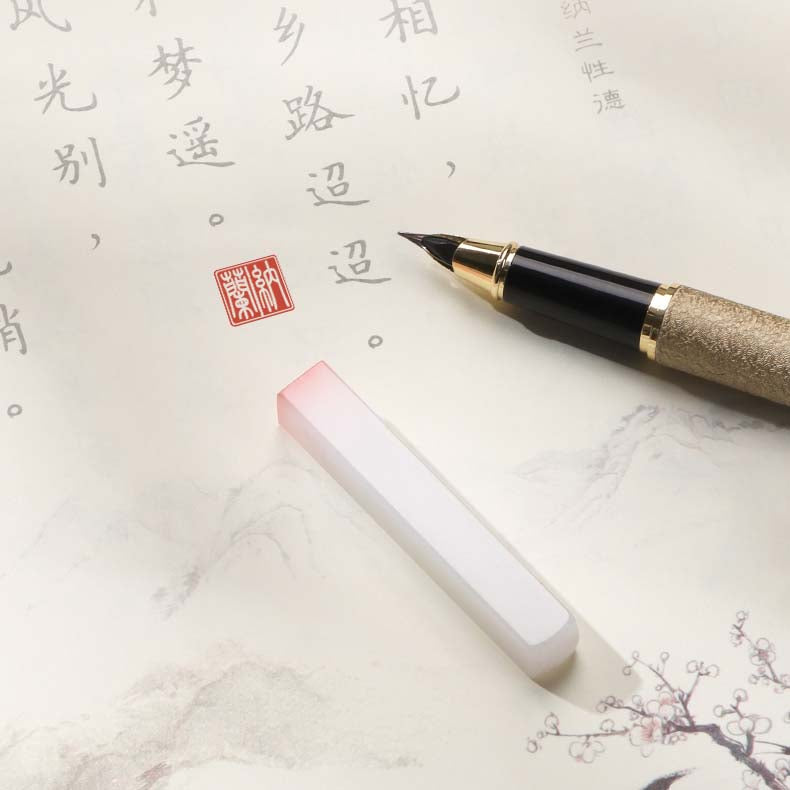 纳兰性德
相忆，
乡路迢迢。
梦遥。
风光别，
納蘭